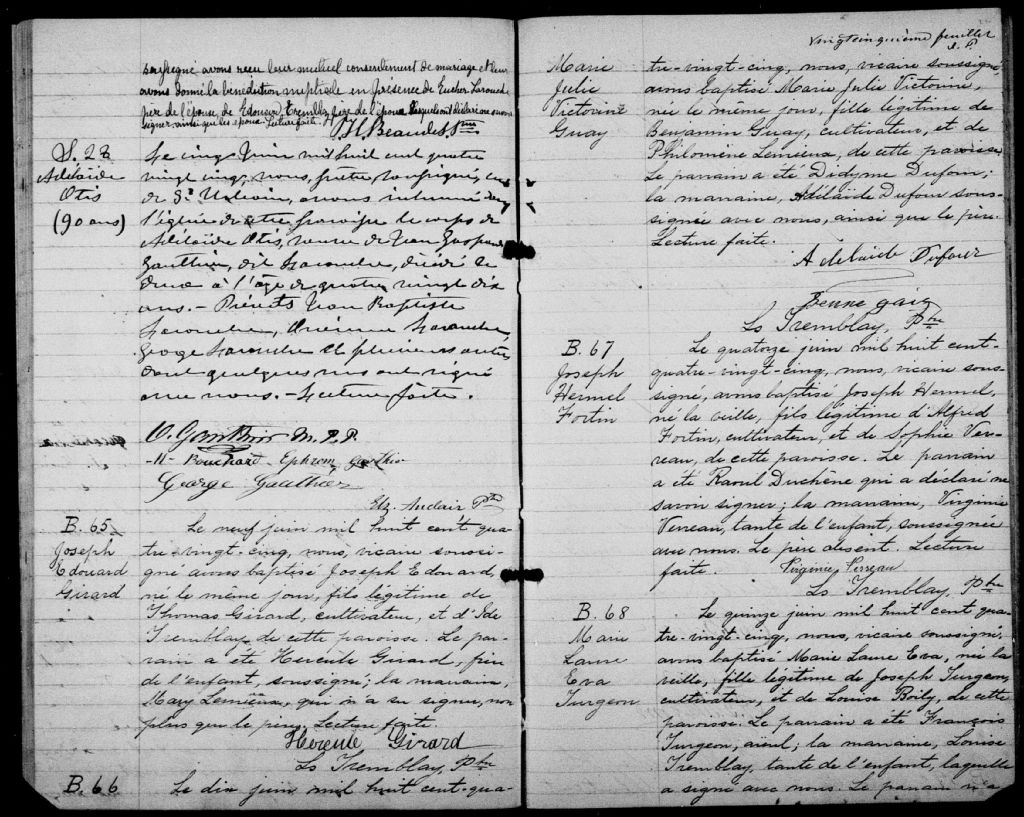 soussigné avons reçu leur mutuel consentement de mariage et leur
avons donné la bénédiction nuptiale en présence de Eucher Larouche
père de l'épouse, de Edouard Tremblay, père de l'époux lesquels ont déclaré
signer ainsi que les époux. Lecture faite.
S. 28
Adélaïde
Otis
(90 ans)
Le cinq Juin mil huit cent quatre
vingt cinq, nous, prêtre, soussigné, curé
de St
avons inhumé dans
l'église de cette paroisse le corps de
Adélaïde Otis, veuve de Jean Gaspard
Gauthier, dit Larouche, décédé le
deux à l'âge de quatre vingt dix
ans. - Présents Jean Baptiste
Larouche, Larouche,
George Larouche et plusieurs autres
dont quelques uns ont signé
avec nous. - Lecture faite.
O. Gauthier M.P.P.
Bouchard Ephrem Gauthier
George Gauthier
Elz. Auclair Ptre
B. 65
Joseph
Edouard
Girard
Le neuf juin mil huit cent qua-
tre-vingt-cinq, nous, vicaire soussi-
gné avons baptisé Joseph Edouard,
né le même jour, fils légitime de
Thomas Girard, cultivateur, et d'Ida
Tremblay de cette paroisse. Le par-
rain a été Hercule Girard, frère
de l'enfant, soussigné; la marraine,
Mary Lemieux, qui n'a su signer, non
plus que le père. Lecture faite.
Hercule Girard
Ls Tremblay, Ptre
B. 66
Le dix juin mil huit cent-qua-
Vingtcinquième feuillet
Marie
Julie
Victorine
Guay
tre-vingt-cinq, nous, vicaire soussigné,
avons baptisé Marie Julie Victorine,
née le même jour, fille légitime de
Benjamin Guay, cultivateur, et de
Philomène Lemieux, de cette paroisse.
Le parrain a été Didyme Dufour;
la marraine, Adélaïde Dufour sous-
signée avec nous, ainsi que le père.
Lecture faite.
Adelaide Dufour
Ls Tremblay, Ptre
B. 67
Joseph
Hermel
Fortin
Le quatorze juin mil huit cent-
quatre-vingt-cinq, nous, vicaire sous-
signé, avons baptisé Joseph Hermel,
né la veille, fils légitime d'Alfred
Fortin, cultivateur, et de Sophie Ver-
reau, de cette paroisse. Le parrain
a été Raoul Duchène qui a déclaré ne
savoir signer; la marraine, Virginie
Verreau, tante de l'enfant, soussignée
avec nous. Le père absent. Lecture
faite. Virginie Verreau
Ls Tremblay, Ptre
B. 68
Marie
Laure
Eva
Turgeon
Le quinze juin mil huit cent qua-
tre-vingt-cinq, nous, vicaire soussigné,
avons baptisé Marie Laure Eva, née la
veille, fille légitime de Joseph Turgeon,
cultivateur, et de Louise Boily, de cette
paroisse. Le parrain a été François
Turgeon, aïeul; la marraine, Louise
Tremblay, tante de l'enfant, laquelle
a signé avec nous. Le parrain n'a